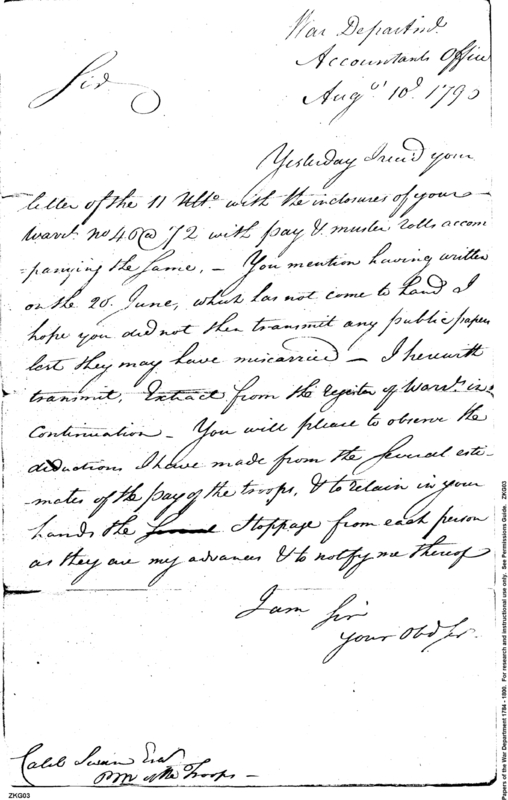 War Departmt
Accountants Office
Augst 10th 179
Sir
Yesterday I rec'd your
letter of the 11 Ulto. with the inclosures of your
Warrts. no 46 @ 72 with pay & muster rolls accom
=panying the same, - You mention having written
on the 20 June, which has not come to hand I
hope you did not then transmit any public papers
lest they may have miscarried - I herewith
transmit, Extract from the register of Warrts. in
Continuation - You will please to observe the
deductions I have made from the several esti-
mates of the pay of the troops, & to retain in your
hands the Several Stoppage from each person
as they are my advances & to notify me thereof
I am Sir
your Obd Sr.
Caleb Swan Esqr
PM of the Troops -
ZKG03
Papers of the War Department 1784 - 1800. For research and instructional use only. See Permissions Guide. ZKG03